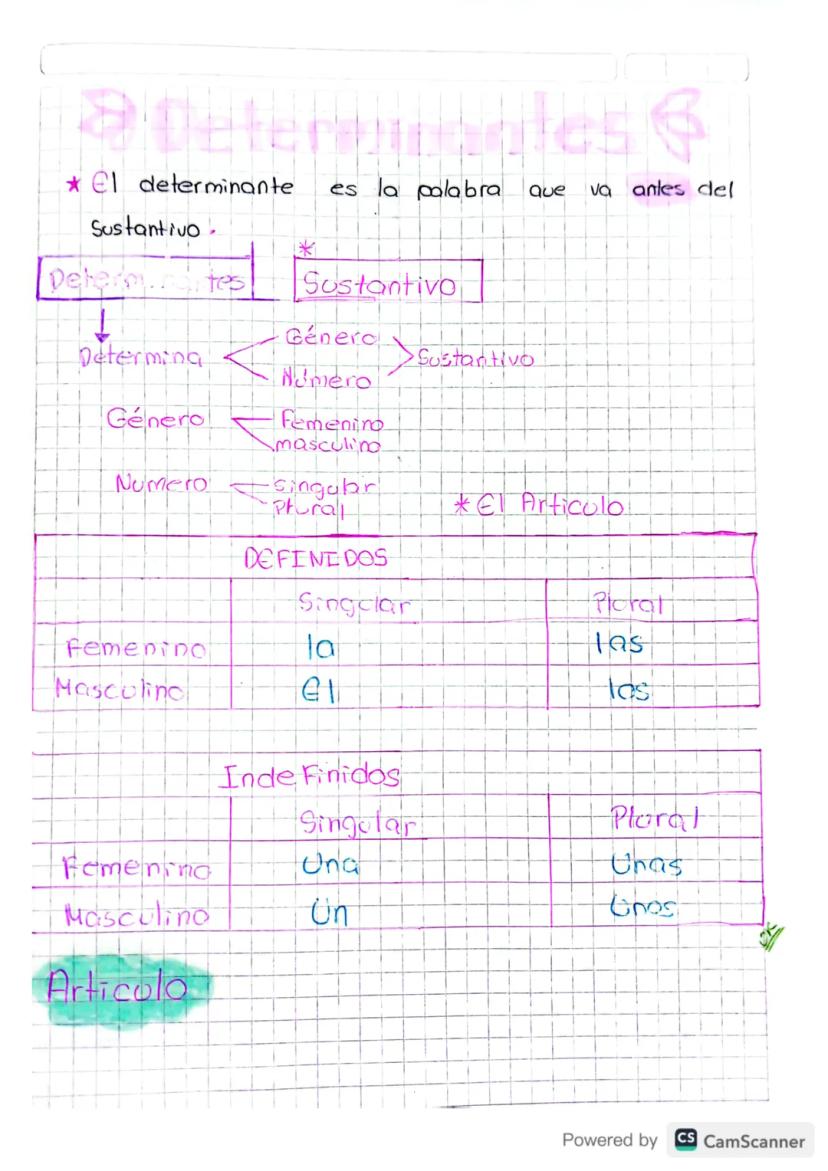 Determinantes
* El determinante es la palabra que va antes del
Sustantivo.
Determinantes
* Sustantivo
Determina
Género
Número
Sustantivo
Género
Femenino
masculino
Numero
Singular
Plural
* El Articulo
DEFINIDOS
Singular Plural
Femenino la las
Masculino El los
Indefinidos
Singular Plural
Femenino Una Unas
Masculino Un Unos
Articulo
Powered by CS CamScanner